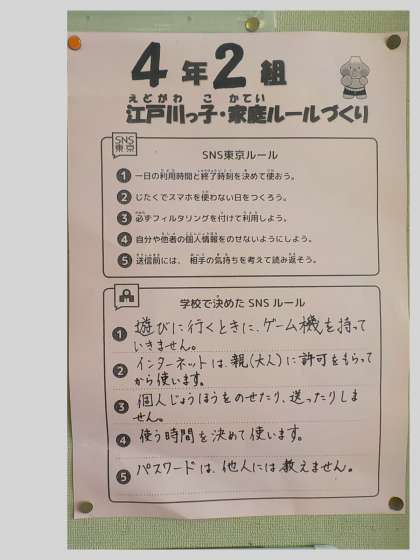 4年2組
えどがわ こ かてい
江戸川っ子・家庭ルールづくり
SNS
東京
SNS東京ルール
1 一日の利用時間と終了時刻を決めて使おう。
2 じたくでスマホを使わない日をつくろう。
3 必ずフィルタリングを付けて利用しよう。
4 自分や他者の個人情報をのせないようにしよう。
5 送信前には、相手の気持ちを考えて読み返そう。
学校で決めた SNS ルール
1 遊びに行くときに、ゲーム機を持って
いきません。
2 インターネットは、親(大人)に許可をもらって
から使います。
3 個人じょうほうをのせたり、送ったりしま
せん。
4 使う時間を決めて使います。
5 パスワードは、他人には教えません。